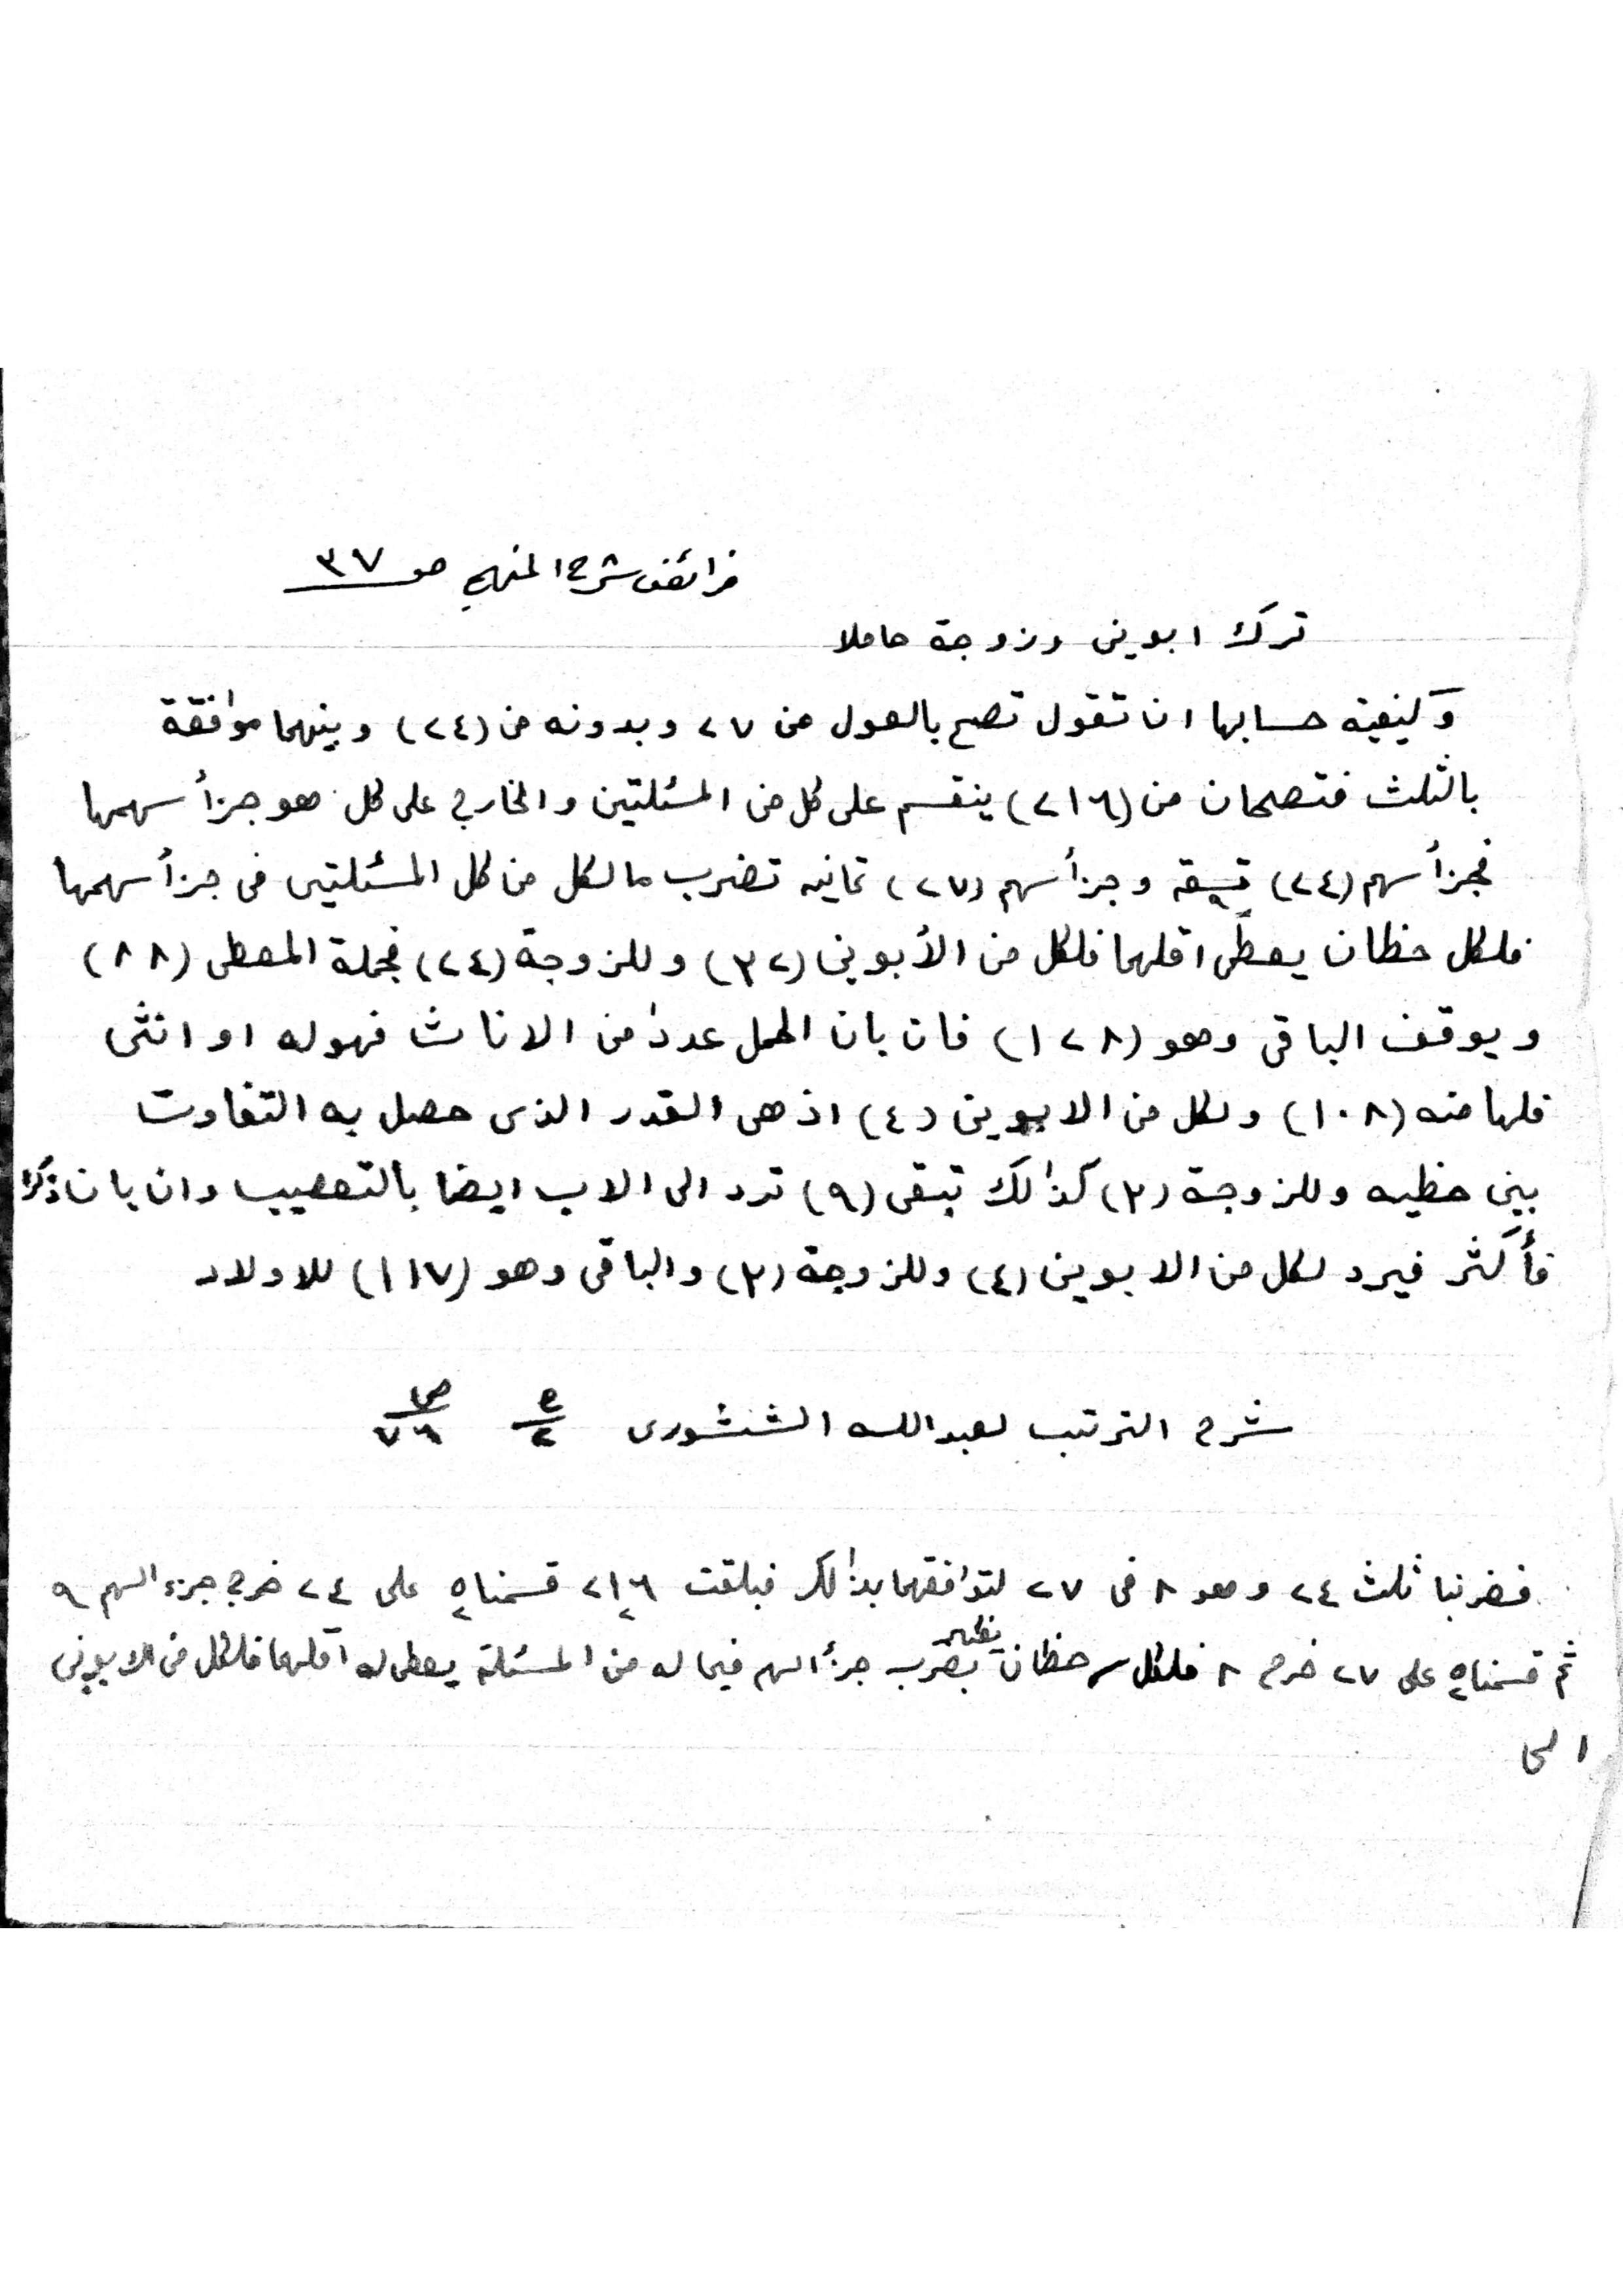 فرائض شرح المنهج ص ٣٧
ترك ابوين وزوجة حاملا
وكيفية حسابها ان تقول تصح بالعول من ٢٧ وبدونه من (٢٤) وبينهما موافقة
بالثلث فتصحان من (٢١٦) ينقسم على كل من المسئلتين والخارج على كل هو جزأ سهمها
فجزأ سهم (٢٤) تسعة وجزأ سهم (٢٧) ثمانيه تضرب ما لكل من كل المسئلتين فى جزأ سهمها
فلكل حظان يعطى اقلهما فلكل من الأبوين (٣٢) وللزوجة (٢٤) فجملة المعطى (٨٨)
ويوقف الباقى وهو (١٢٨) فان بان الحمل عددا من الاناث فهو له او انثى
فلها منه (١٠٨) ولكل من الابوين (٤) اذ هى القدر الذى حصل به التفاوت
بين حظيه وللزوجة (٣) كذالك تبقى (٩) ترد الى الاب ايضا بالتعصيب وان بان ذكرا
فأكثر فيرد لكل من الابوين (٤) وللزوجة (٣) والباقى وهو (١١٧) للاولاد
شرح الترتيب لعبد الله الشنشورى ج ٢ ص ٧٦
فضربنا ثلث ٢٤ وهو ٨ فى ٢٧ لتوافقهما بذالك فبلغت ٢١٦ قسمناه على ٢٤ خرج جزء السهم ٩
ثم قسمناه على ٢٧ خرج ٨ فلكل حظان يظهر بضرب جزأ السهم فيما له من المسئلة يعطى له اقلهما فلكل من الابوين
الخ